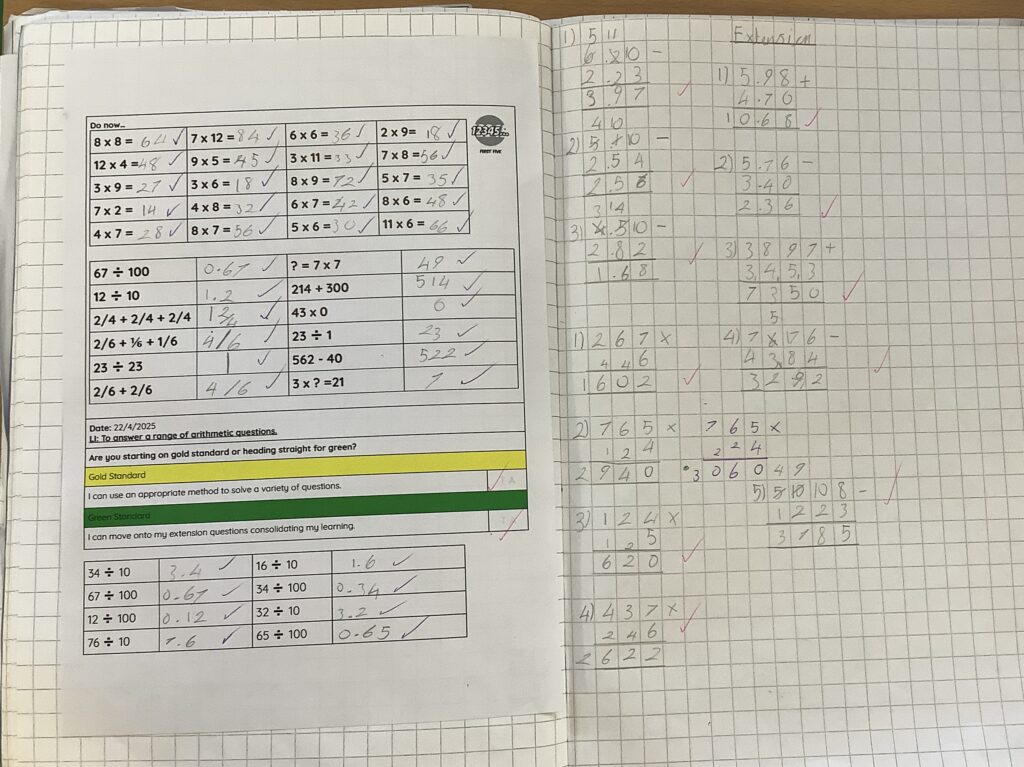 Do now...
8 x 8 = 64 ✓ 7 x 12 = 84 ✓ 6 x 6 = 36 ✓ 2 x 9= 18 ✓
12 x 4 = 48 ✓ 9 x 5 = 45 ✓ 3 x 11 = 33 ✓ 7 x 8 = 56 ✓
3 x 9 = 27 ✓ 3 x 6 = 18 ✓ 8 x 9 = 72 ✓ 5 x 7 = 35 ✓
7 x 2 = 14 ✓ 4 x 8 = 32 ✓ 6 x 7 = 42 ✓ 8 x 6 = 48 ✓
4 x 7 = 28 ✓ 8 x 7 = 56 ✓ 5 x 6 = 30 ✓ 11 x 6 = 66 ✓
12345...
FIRST FIVE
67 ÷ 100 0.67 ✓ ? = 7 x 7 49 ✓
12 ÷ 10 1.2 ✓ 214 + 300 514 ✓
2/4 + 2/4 + 2/4 1 2/4 ✓ 43 x 0 0 ✓
2/6 + ⅙ + 1/6 4/6 ✓ 23 ÷ 1 23 ✓
23 ÷ 23 1 ✓ 562 - 40 522 ✓
2/6 + 2/6 4/6 ✓ 3 x ? =21 7 ✓
Date: 22/4/2025
LI: To answer a range of arithmetic questions.
Are you starting on gold standard or heading straight for green?
Gold Standard
I can use an appropriate method to solve a variety of questions.
Green Standard
I can move onto my extension questions consolidating my learning.
34 ÷ 10 3.4 ✓ 16 ÷ 10 1.6 ✓
67 ÷ 100 0.67 ✓ 34 ÷ 100 0.34 ✓
12 ÷ 100 0.12 ✓ 32 ÷ 10 3.2 ✓
76 ÷ 10 7.6 ✓ 65 ÷ 100 0.65 ✓
1) 5 11
6.210 -
2.23
3.97
4 10
2) 5 10 -
2.54
2 5 6
3 14
3) 4.510 -
2.82
1.68
1) 267 x
446
1602
2) 765 x
124
2940
765 x
224
3060
3) 124 x
125
620
4) 437 x
246
2622
Extension
1) 5.98 +
4.70
10.68
2) 5.76 -
3.40
2.36
3) 3897 +
3453
7350
5
4) 7 6 -
4384
3292
49
5) 5 10 10 8 -
1223
3785